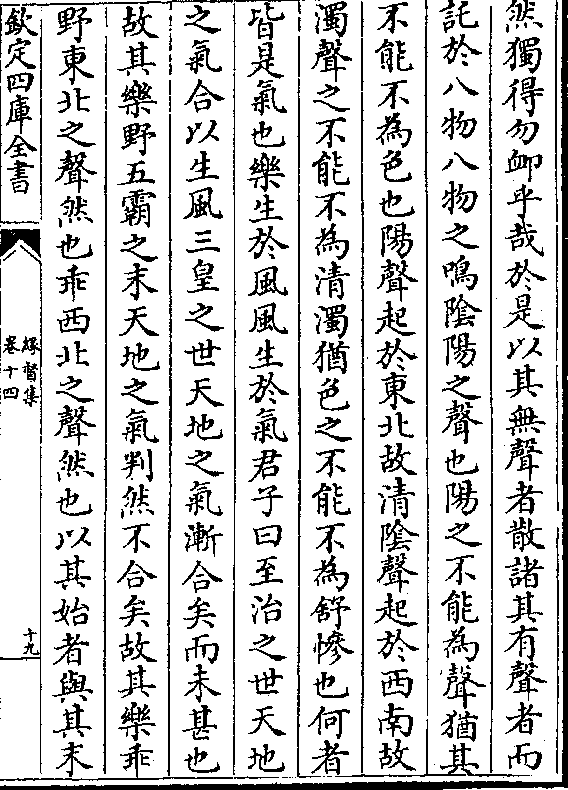 然獨得勿卹乎哉於是以其無聲者散諸其有聲者而
託於八物八物之鳴陰陽之聲也陽之不能為聲猶其
不能不為色也陽聲起於東北故清陰聲起於西南故
濁聲之不能不為清濁猶色之不能不為舒慘也何者
皆是氣也樂生於風風生於氣君子曰至治之世天地
之氣合以生風三皇之世天地之氣漸合矣而未甚也
故其樂野五霸之末天地之氣判然不合矣故其樂乖
野東北之聲然也乖西北之聲然也以其始者與其末
欽定四庫全書
緣督集
卷十四
十九